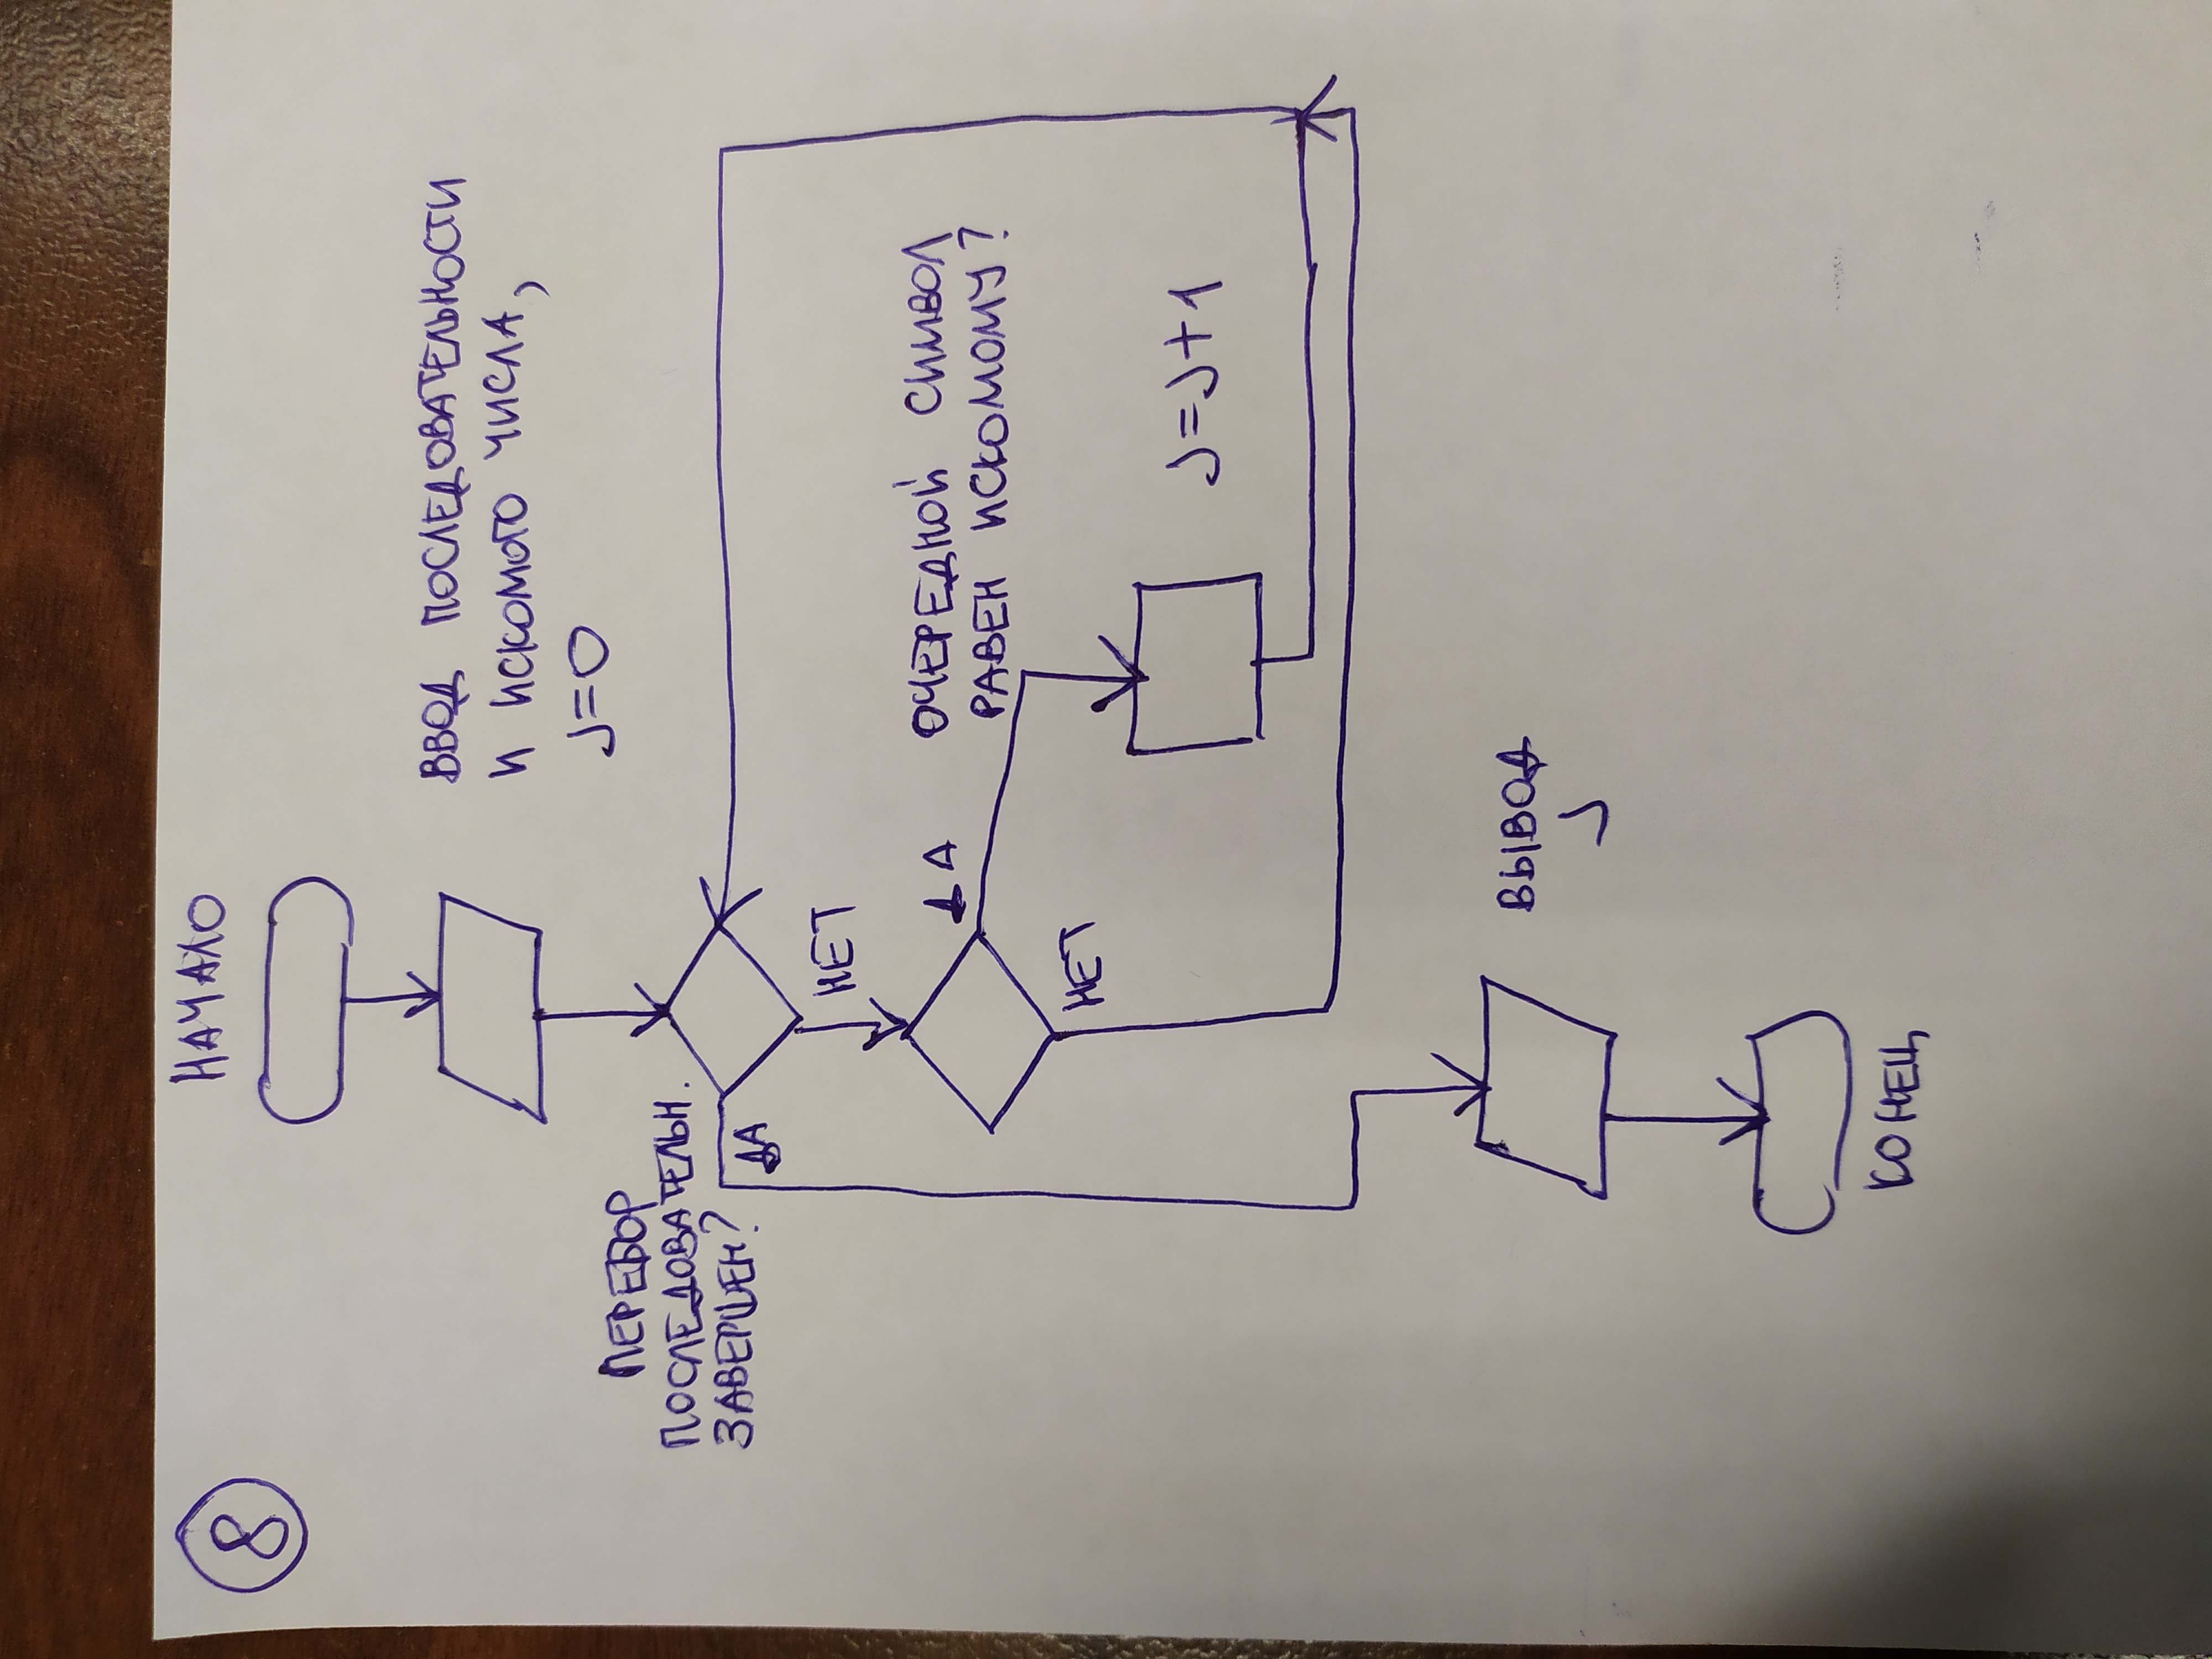 8
НАЧАЛО
ВВОД ПОСЛЕДОВАТЕЛЬНОСТИ
И ИСКОМОГО ЧИСЛА,
J=0
ПЕРЕБОР
ПОСЛЕДОВАТЕЛЬН.
ЗАВЕРШЕН?
ДА
НЕТ
ДА
ОЧЕРЕДНОЙ СИМВОЛ
РАВЕН ИСКОМОМУ?
НЕТ
J=J+1
ВЫВОД
J
КОНЕЦ